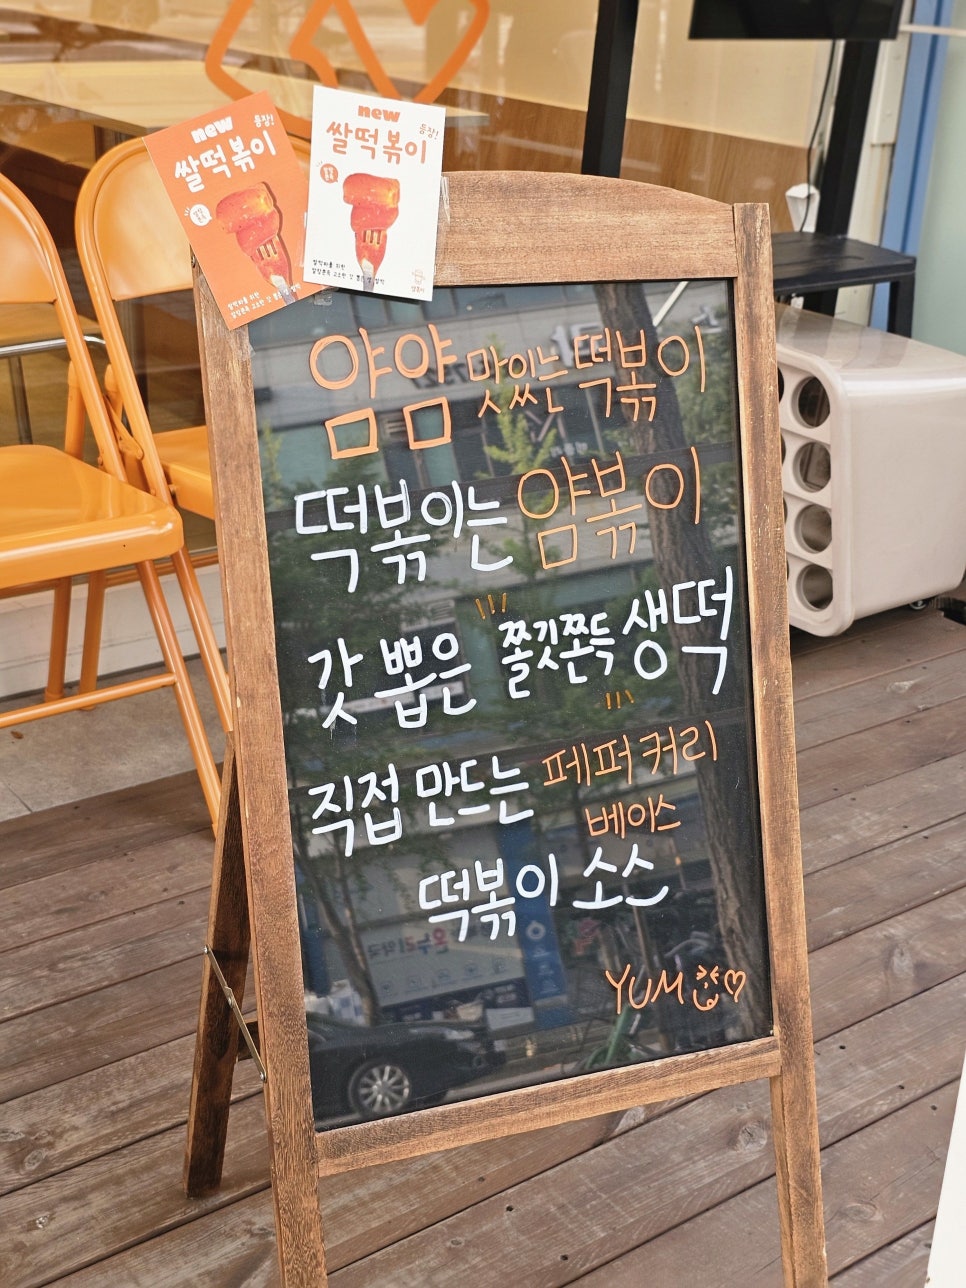 new
등장!
쌀떡볶이
new
등장!
쌀떡볶이
얌얌 맛있는 떡볶이
떡볶이는 얌볶이
갓 뽑은 쫄깃쫀득 생떡
직접 만드는 페퍼 커리
베이스
떡볶이 소스
YUM